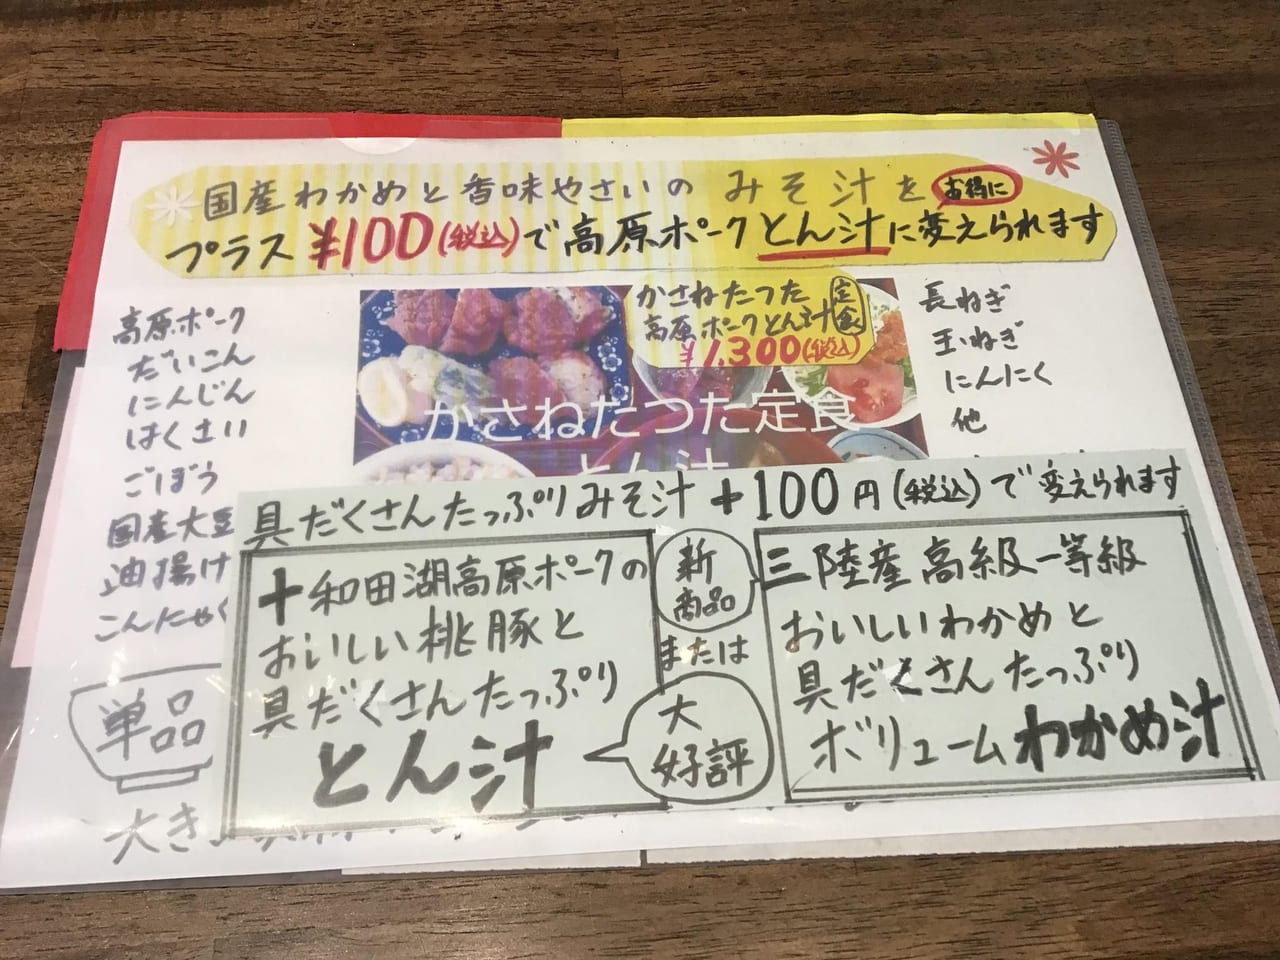 国産わかめと香味やさいの みそ汁を お得に
プラス ¥100(税込)で高原ポークとん汁に変えられます
高原ポーク
だいこん
にんじん
はくさい
ごぼう
国産大豆
油揚げ
こんにゃく
かさねたつた
高原ポークとん汁 定食
¥1,300(税込)
かさねたつた定食
とん汁
長ねぎ
玉ねぎ
にんにく
他
具だくさんたっぷりみそ汁+100円(税込)で変えられます
十和田湖高原ポークの
おいしい桃豚と
具だくさんたっぷり
とん汁
新
商品
または
大
好評
三陸産高級一等級
おいしいわかめと
具だくさんたっぷり
ボリュームわかめ汁
単品
大き